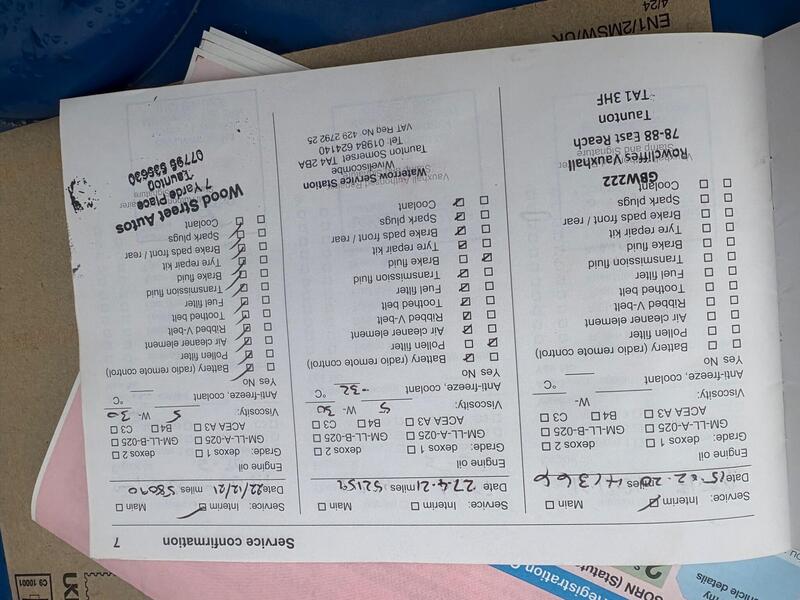 Service confirmation 7
Service: Interim Main
Date 15.2.20 miles 41366
Engine oil
Grade: dexos 1 dexos 2
GM-LL-A-025 GM-LL-B-025
ACEA A3 B4 C3
Viscosity: W-
Anti-freeze, coolant °C
Yes No
Battery (radio remote control)
Pollen filter
Air cleaner element
Ribbed V-belt
Toothed belt
Fuel filter
Transmission fluid
Brake fluid
Tyre repair kit
Brake pads front / rear
Spark plugs
Coolant
GBW222
Rowcliffes Vauxhall
78-88 East Reach
Taunton
TA1 3HF
Service: Interim Main
Date 27.4.21 miles 52159
Engine oil
Grade: dexos 1 dexos 2
GM-LL-A-025 GM-LL-B-025
ACEA A3 B4 C3
Viscosity: 5 W- 30
Anti-freeze, coolant -32 °C
Yes No
Battery (radio remote control)
Pollen filter
Air cleaner element
Ribbed V-belt
Toothed belt
Fuel filter
Transmission fluid
Brake fluid
Tyre repair kit
Brake pads front / rear
Spark plugs
Coolant
Waterrow Service Station
Wiveliscombe
Taunton Somerset TA4 2BA
Tel: 01984 624140
VAT Reg No 429 2792 25
Service: Interim Main
Date 22/12/21 miles 58090
Engine oil
Grade: dexos 1 dexos 2
GM-LL-A-025 GM-LL-B-025
ACEA A3 B4 C3
Viscosity: 5 W- 30
Anti-freeze, coolant °C
Yes No
Battery (radio remote control)
Pollen filter
Air cleaner element
Ribbed V-belt
Toothed belt
Fuel filter
Transmission fluid
Brake fluid
Tyre repair kit
Brake pads front / rear
Spark plugs
Coolant
Wood Street Autos
7 Yarde Place
Taunton
07795 535630
4/24
EN1/2MSW/UK
Registration
SORN (Statut
my
hicle details
UK
C9 10001